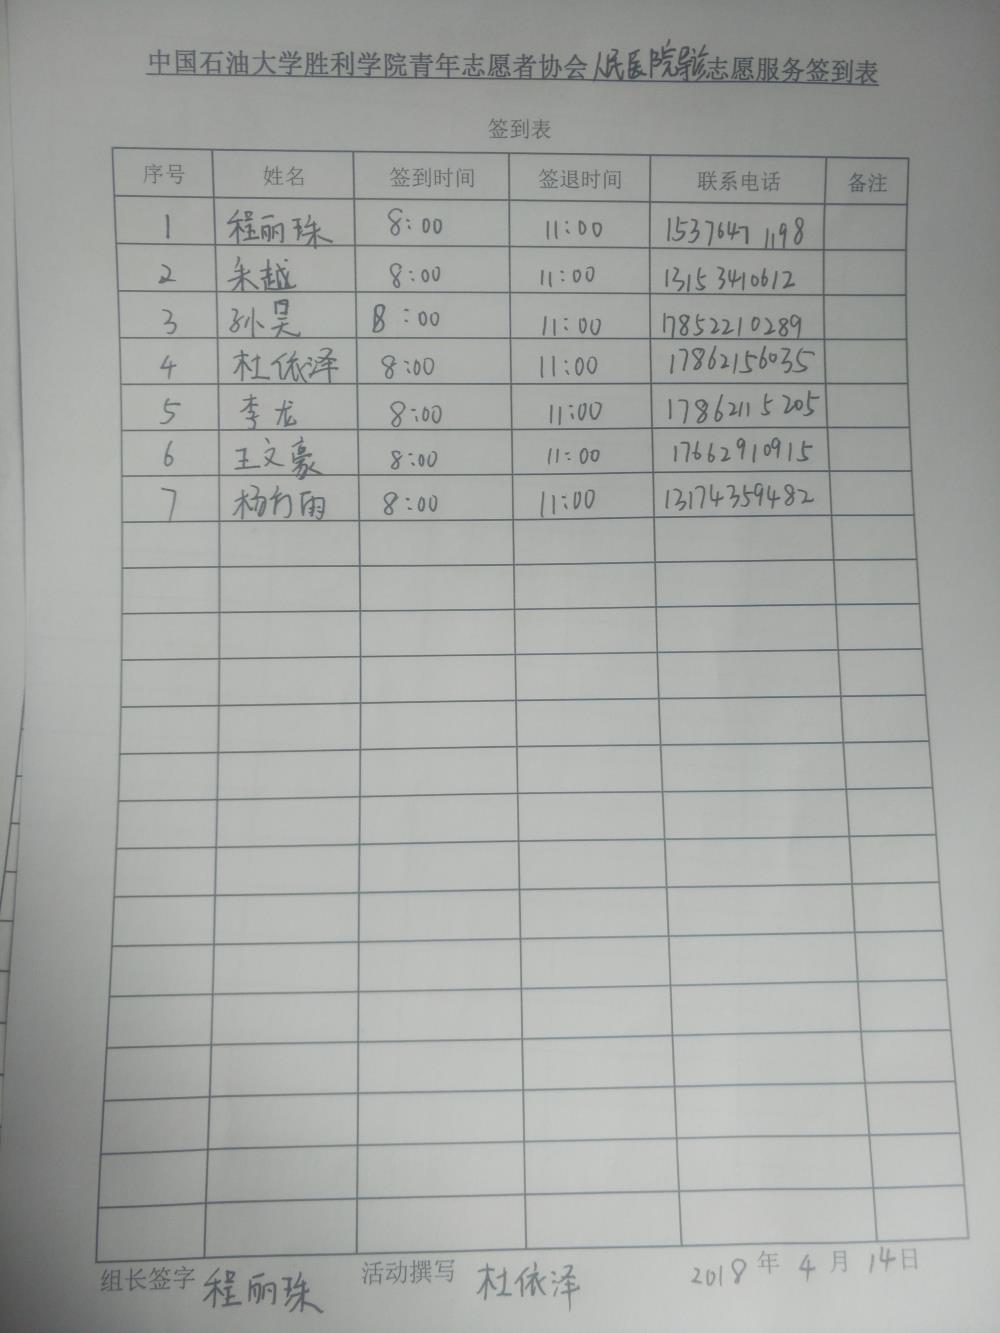 中国石油大学胜利学院青年志愿者协会人民医院导诊志愿服务签到表
签到表
序号 姓名 签到时间 签退时间 联系电话 备注
1 程丽珠 8:00 11:00 15376471198
2 朱越 8:00 11:00 13153410612
3 孙昊 8:00 11:00 17852210289
4 杜依泽 8:00 11:00 17862156035
5 李龙 8:00 11:00 17862115205
6 王文豪 8:00 11:00 17662910915
7 杨行雨 8:00 11:00 13174359482
组长签字 程丽珠 活动撰写 杜依泽 2018年4月14日